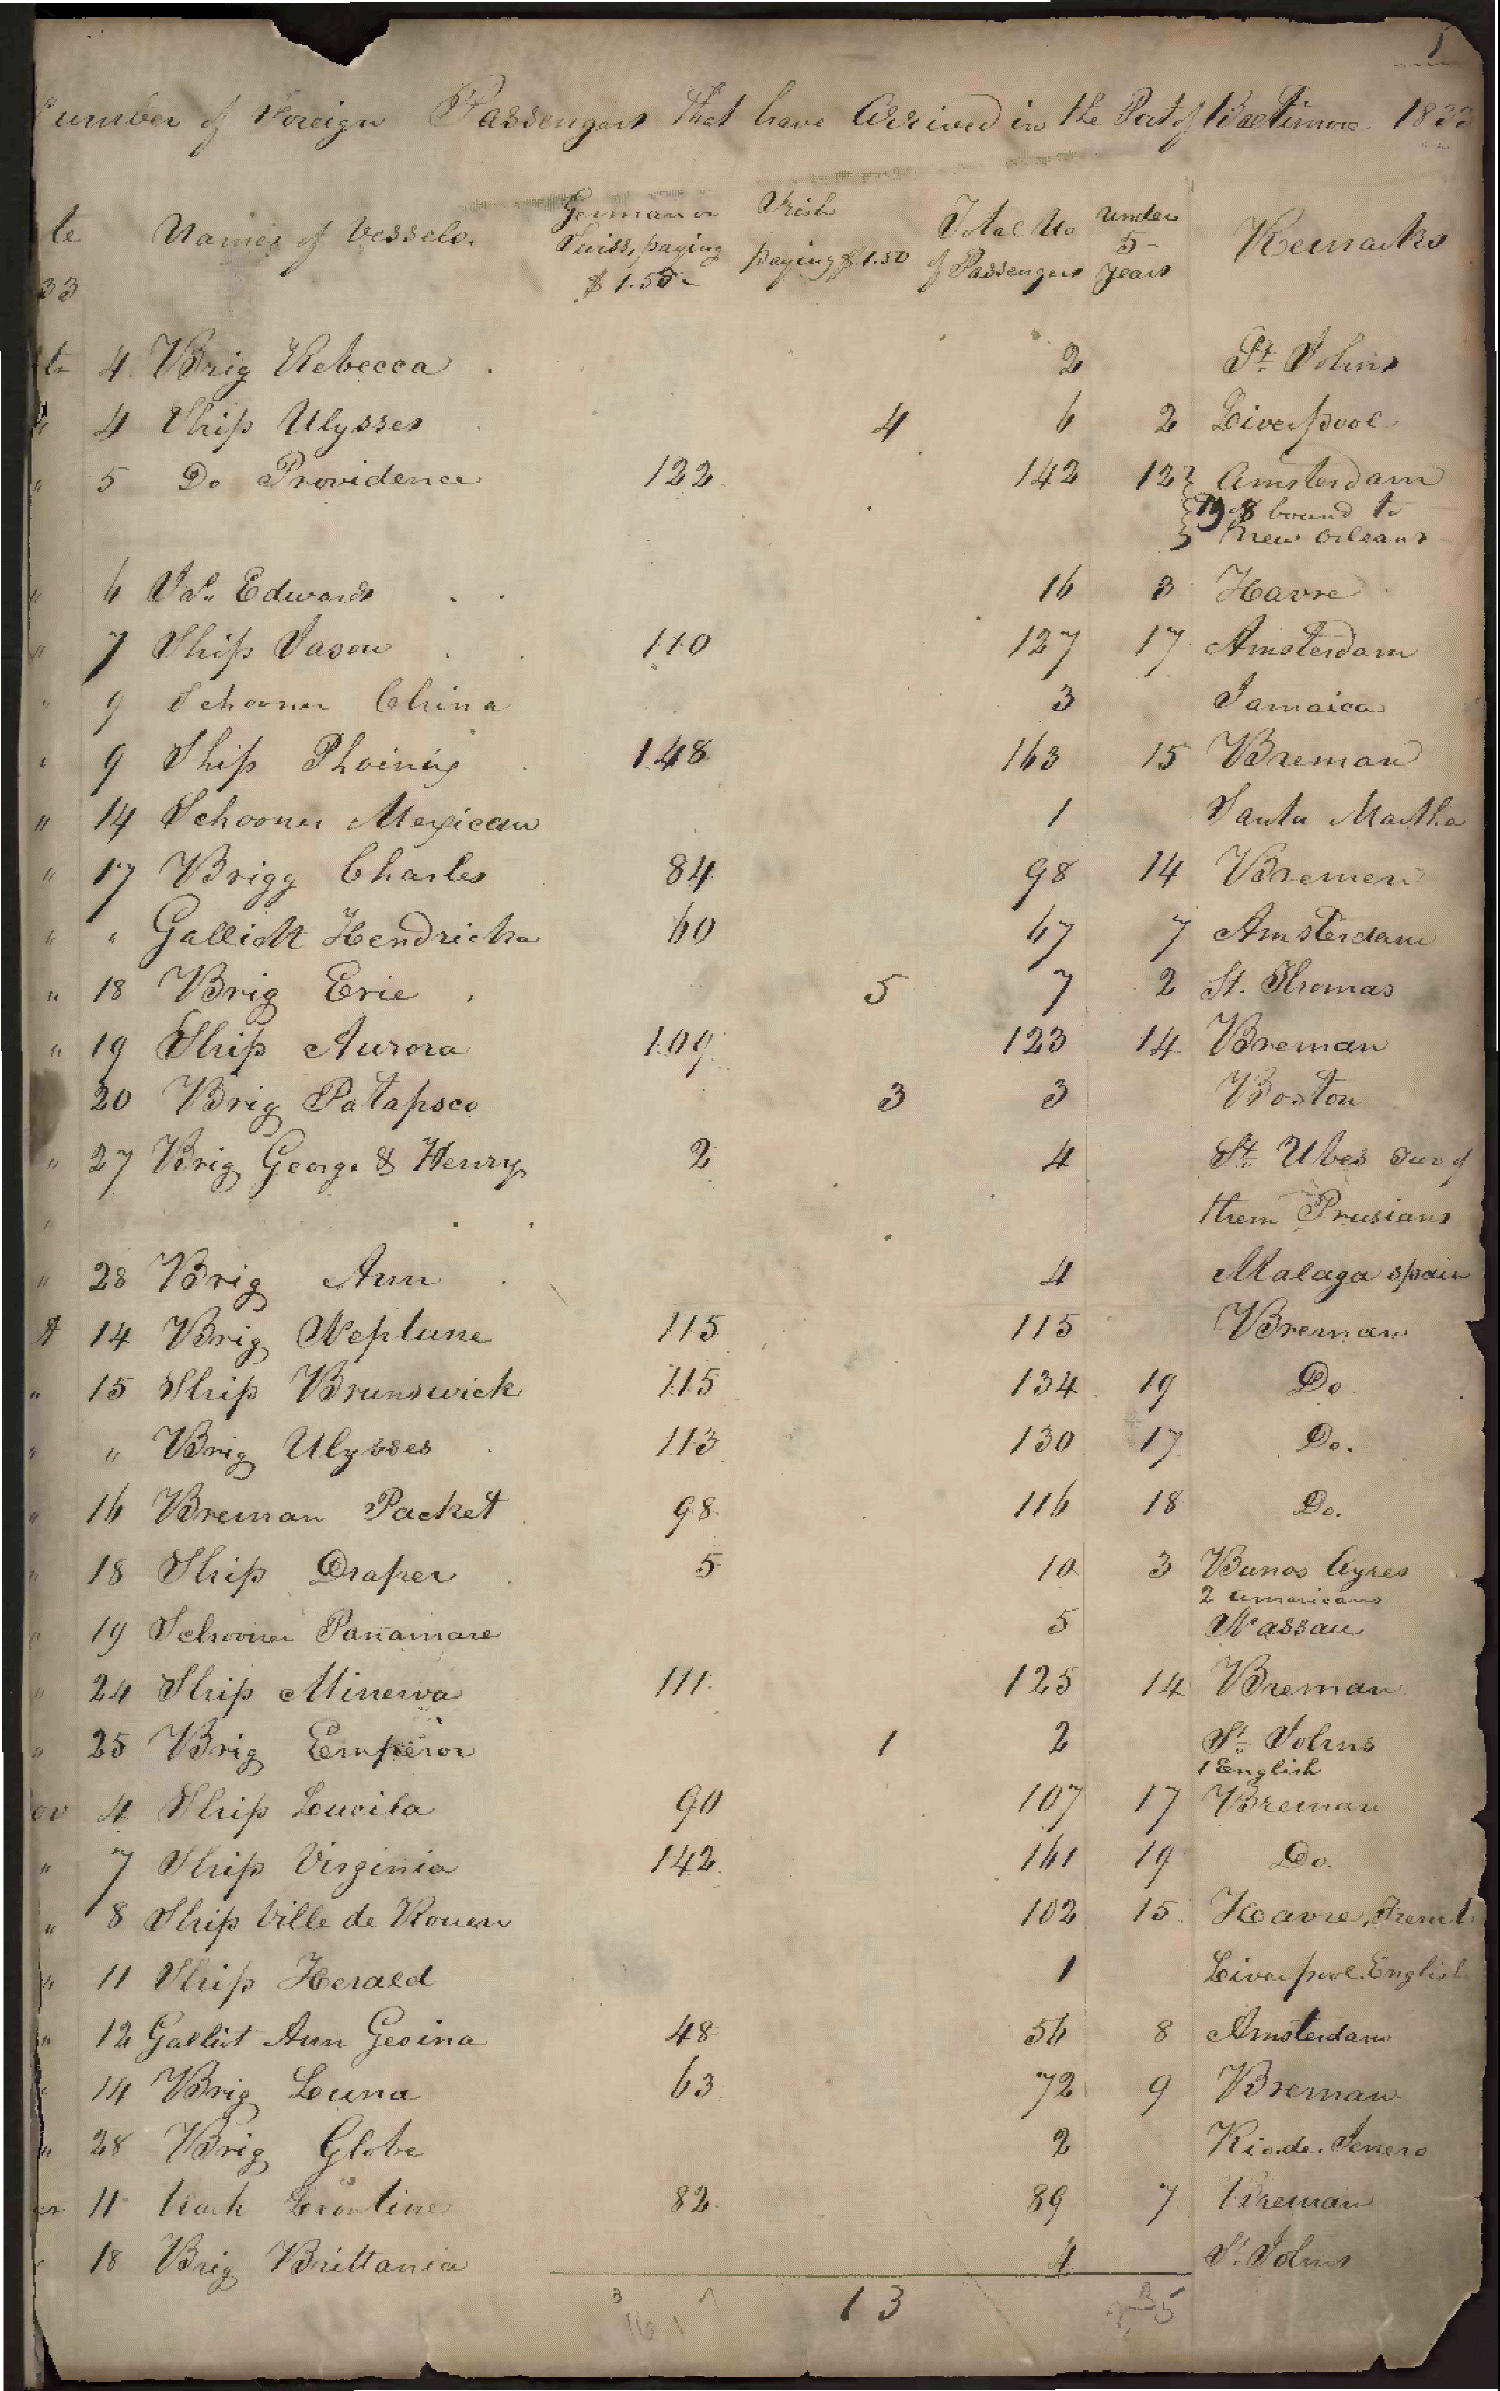 1
umber of Foreign Passengers that have Arrived in the Port of Baltimore 1833
te Names of Vessels. German or Swiss, paying $1.50 Irish paying $1.50 Total No of Passengers under 5 years Remarks
33
4 Brig Rebecca 2 St. Johns
" 4 Ship Ulysses 4 6 2 Liverpool
" 5 Do Providence 122 142 12 Amsterdam
8 bound to
New Orleans
" 6 Jas. Edwards 16 3 Havre
" 7 Ship Jason 110 127 17 Amsterdam
" 9 Schooner China 3 Jamaica
" 9 Ship Phoinix 148 163 15 Breman
" 14 Schooner Mexican 1 Santa Martha
" 17 Brigg Charles 84 98 14 Bremen
" " Galliott Hendricka 60 67 7 Amsterdam
" 18 Brig Erie 5 7 2 St. Thomas
" 19 Ship Aurora 109 123 14 Breman
20 Brig Patapsco 3 3 Boston
" 27 Brig George & Henry 2 4 St. Ubes two of
them Prusians
" 28 Brig Ann 4 Malaga Spain
14 Brig Neptune 115 115 Breman
" 15 Ship Brunswick 115 134 19 Do
" " Brig Ulysses 113 130 17 Do.
" 16 Breman Packet 98 116 18 Do.
" 18 Ship Draper 5 10 3 Bunos Ayres
2 Americans
" 19 Schooner Panamare 5 Nassau
" 24 Ship Minerva 111 125 14 Breman
" 25 Brig Emperor 1 2 St. Johns
1 English
ov 4 Ship Lucila 90 107 17 Breman
" 7 Ship Virginia 142 161 19 Do.
" 8 Ship Ville de Rouen 102 15 Havre, French
" 11 Ship Herald 1 Liverpool. English
" 12 Galliot Ann Geoina 48 56 8 Amsterdam
" 14 Brig Luna 63 72 9 Breman
" 28 Brig Globe 2 Rio de Jenero
11 82 89 7 Breman
18 Brig Brittania 4 St. Johns
13